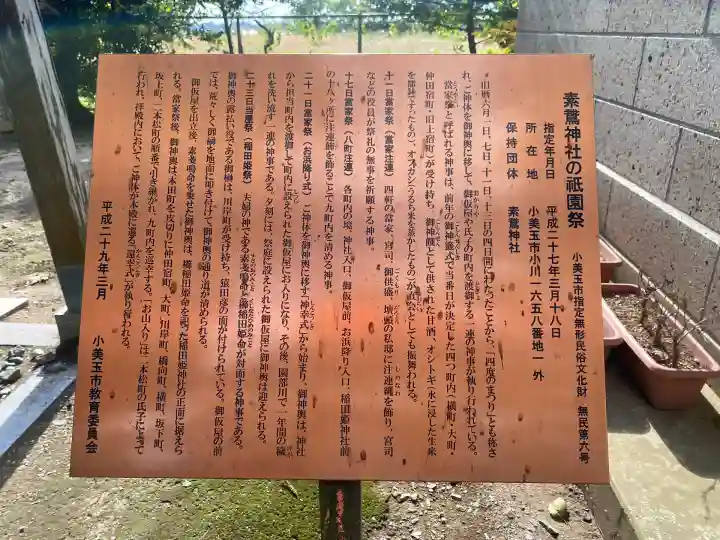 素鵞神社の祇園祭
小美玉市指定無形民俗文化財 無民第六号
指定年月日 平成二十七年三月十八日
所在地 小美玉市小川一六五八番地一外
保持団体 素鵞神社
旧暦六月一日、七日、十一日、十三日の四日間にわたったことから、「四度のまつり」とも称さ
れ、ご神体を御神輿に移して、御仮屋や氏子の町内を渡御する一連の神事が執り行われている。
「當家祭」と呼ばれる神事は、前年の御神籤式で当番日が決定した四つ町内(横町・大町・
仲田宿町・旧上宿町)が受け持ち、御神饌として供された甘酒、オシトギ(水に浸した生米
を すったもの)、オフカシ(うるち米を蒸かしたもの)が直会としても振舞われる。
十一日當家祭(當家注連) 四軒の當家、宮司、御供盛、 の私邸に注連縄を飾り、宮司
などの役員が祭礼の無事を祈願する神事。
十七日當家祭(八町注連) 各町内の境、神社入口、御仮屋前、お浜降り入口、稲田姫神社前
の十八ヶ所に注連 を飾ることで九町内を清める神事。
二十一日當家祭(お浜降り式) ご神体を御神輿に移す「神幸式」から始まり、御神輿は、神社
から担当町内を渡御して町内に設えられた御仮屋にお入りになり、その後、園部川で一年間の穢
れを洗い流す一連の神事である。夕刻には、祭庭に設えられた御仮屋に御神輿は迎えられる。
二十三日當屋祭(稲田姫祭) 夫婦の神である素戔嗚命と櫛稲田姫命が対面する神事である。
御神輿の露払い役である御榊は、川岸町が受け持ち、猿田彦の面が付けられている。御仮屋の前
では、荒々しく御榊を地面に叩き付けて御神輿の通り道が清められる。
御仮屋を出立後、素戔嗚命を乗せた御神輿は、櫛稲田姫命を祀った稲田姫神社の正面に据えら
れる。當家祭後、御神輿は本田町を皮切りに仲田宿町、大町、川岸町、橋向町、横町、坂下町、
坂上町、二本松町の順番で引き継がれ、九町内を巡幸する。「お山入り」は二本松町の氏子によって
行われ、拝殿内において、ご神体が本殿に遷る「還幸式」が執り行われる。
平成二十九年三月 小美玉市教育委員会